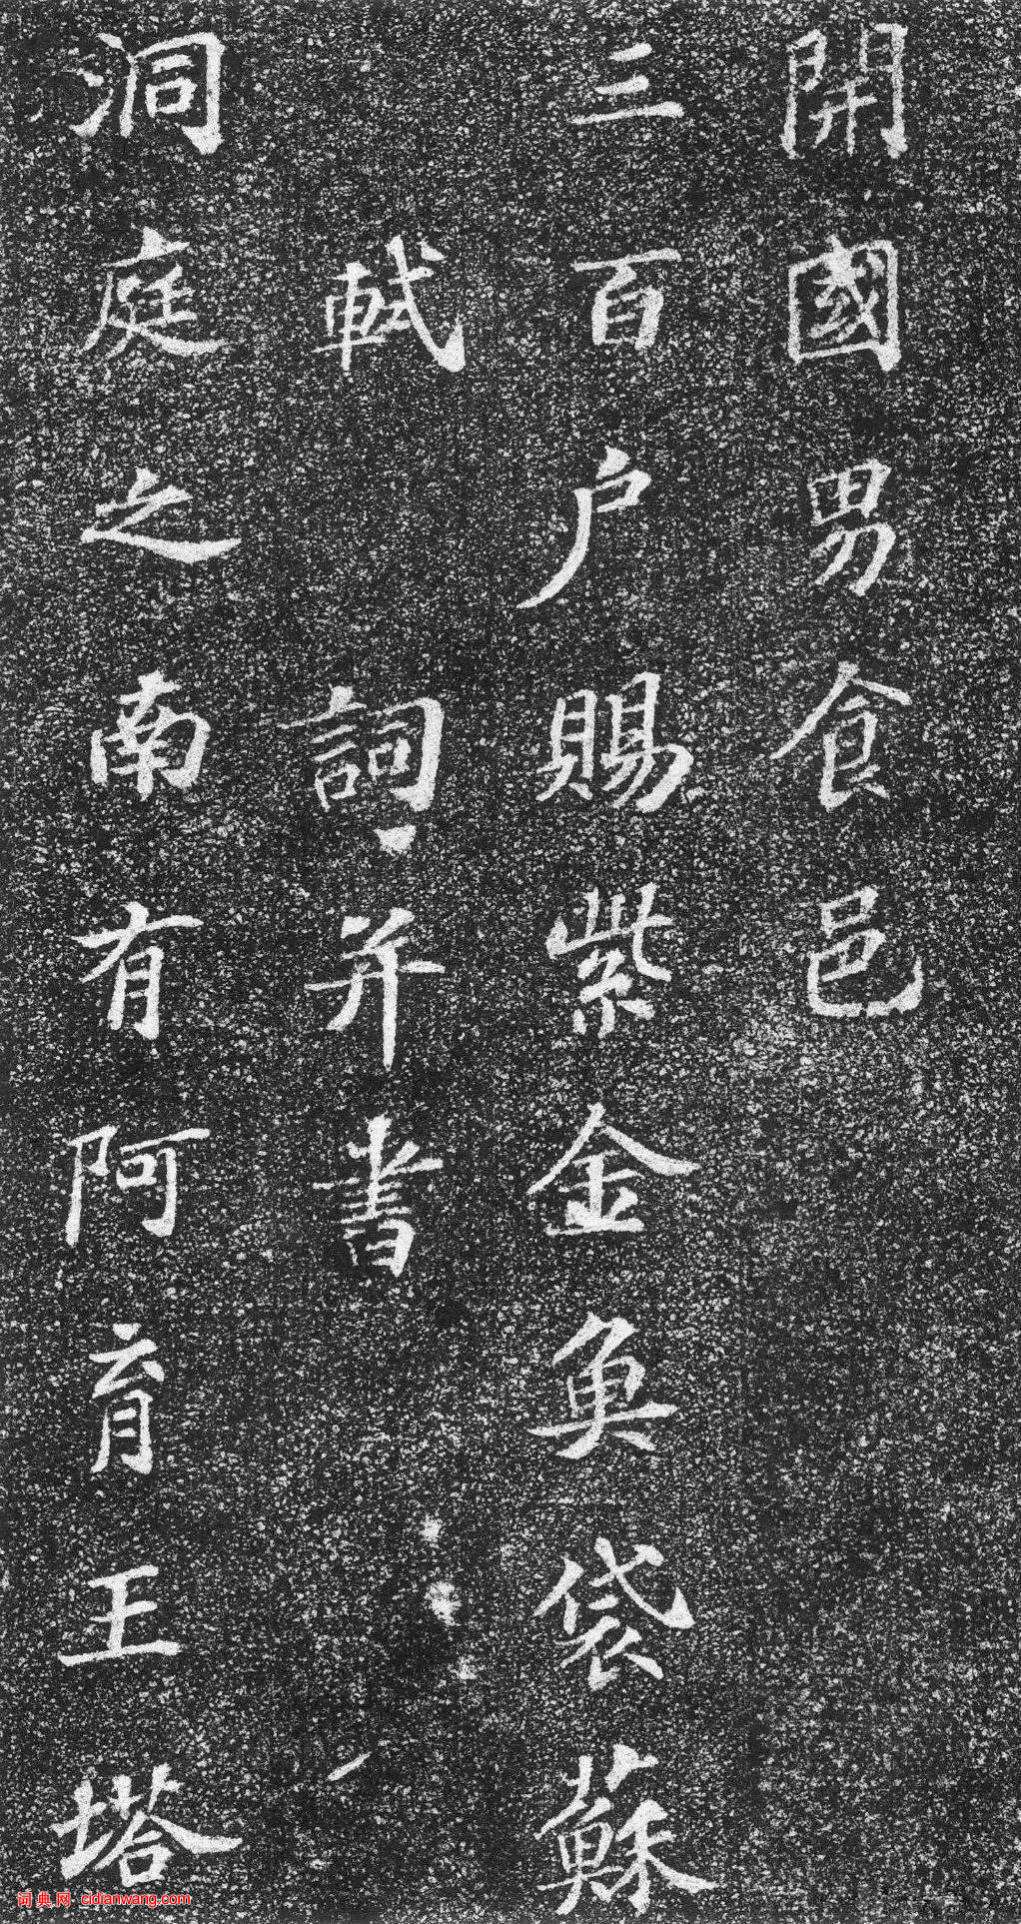 開國男食邑
三百户賜紫金魚袋蘇
軾詞并書
洞庭之南有阿育王塔
词典网 cidianwang.com